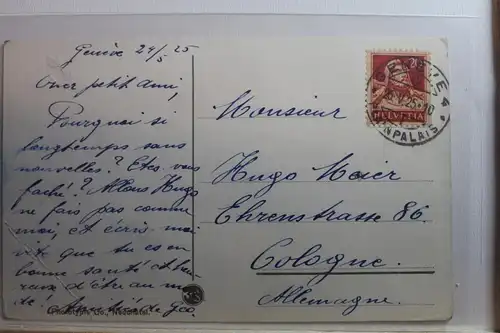 Genève 24/5 25
Cher petit ami,
Pourquoi si
longtemps sans
nouvelles? Etes-vous
faché? Allons Hugo
ne fais pas comme
moi, et écris-moi
vite que tu es en
bonne santé et heu-
reux d'être au
Amitiés de Geo.
Monsieur
Hugo Meier
Ehrenstrasse 86.
Cologne.
Allemagne.
20
HELVETIA
GENÈVE 4
PLAINPALAIS